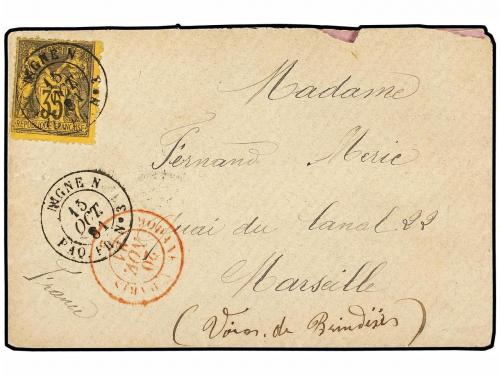 LIGNE N
PAQ. FR. N° 3
15
OCT
81
35
REPUBLIQUE FRANÇAISE
Madame
Fernand Meric
Quai du Canal 22
Marseille
(Voie de Brindisi)
France
LIGNE N
15
OCT.
81
PAQ. FR. N° 3
MODANE
NOV
PARIS